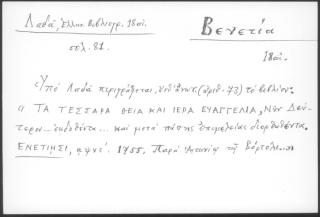 Λαδᾶ, Ἑλλην. Βιβλιογρ. 18αἰ.
Βενετία
σελ. 81.
18αἰ.
Ὑπὸ Λαδᾶ περιγράφεται, (ἀριθ. 73) τὸ βιβλίον:
"ΤΑ ΤΕΣΣΑΡΑ ΘΕΙΑ ΚΑΙ ΙΕΡΑ ΕΥΑΓΓΕΛΙΑ, Νῦν Δεύ-
τερον... ἐκδοθέντα... καὶ μετὰ πάσης ἐπιμελείας διορθωθέντα.
ΕΝΕΤΙΗΣΙ, αψνε΄. 1755, Παρὰ Ἀντωνίῳ τῷ Βόρτολι...»